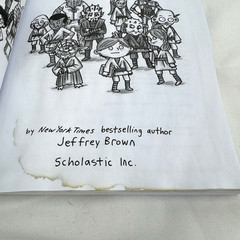 by New York Times bestselling author
Jeffrey Brown
Scholastic Inc.